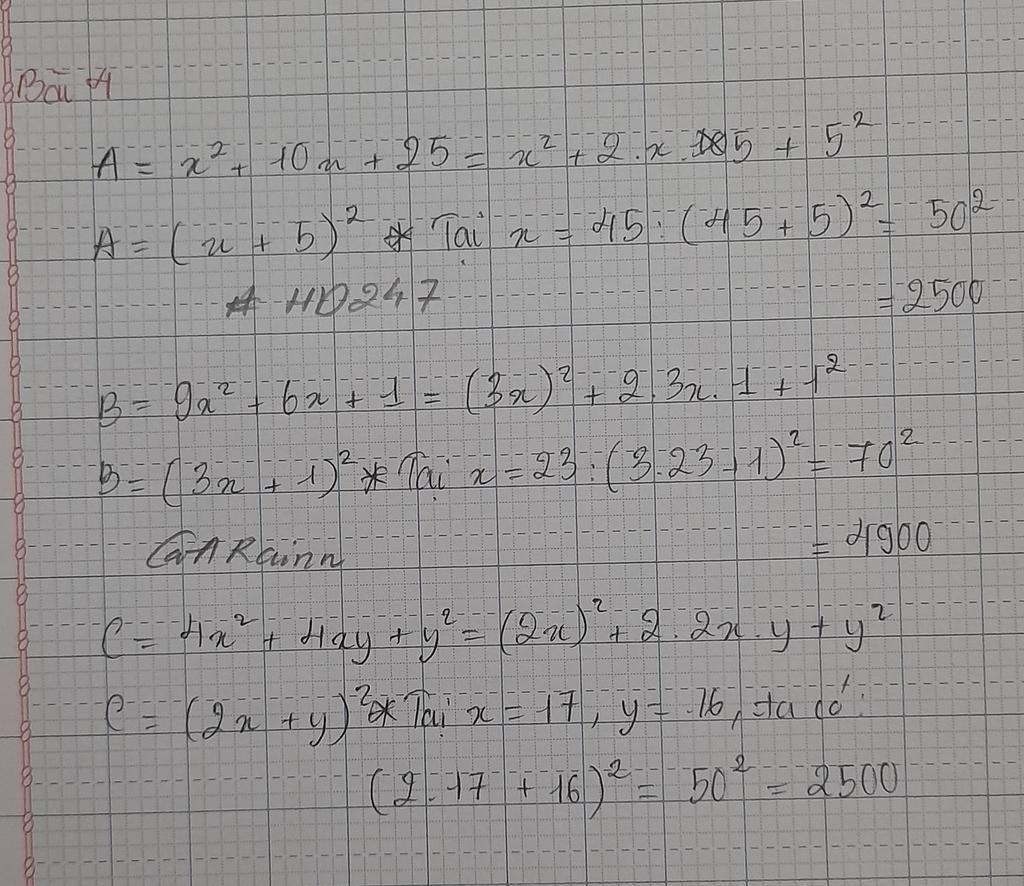 Bài 4
A = x² + 10x + 25 = x² + 2.x.5 + 5²
A = (x + 5)² * Tại x = 45 : (45 + 5)² = 50²
HD247
= 2500
B = 9x² + 6x + 1 = (3x)² + 2.3x.1 + 1²
B = (3x + 1)² * Tại x = 23 : (3.23 + 1)² = 70²
= 4900
C = 4x² + 4xy + y² = (2x)² + 2.2x.y + y²
C = (2x + y)² * Tại x = 17, y = 16, ta có :
(2.17 + 16)² = 50² = 2500